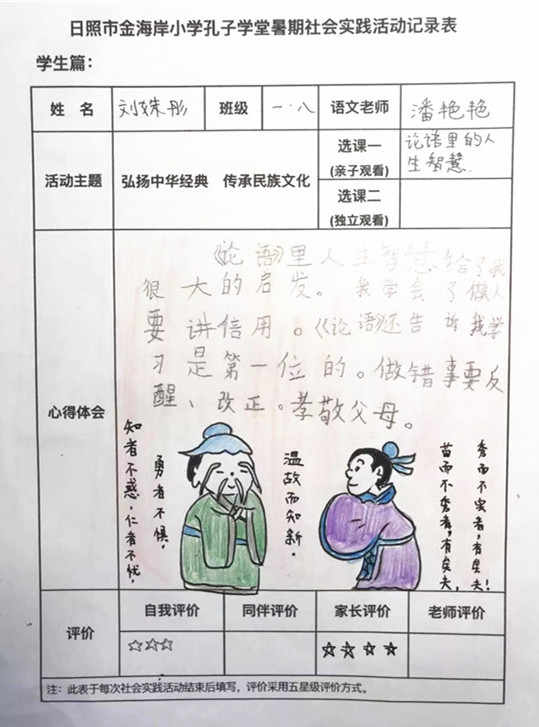 日照市金海岸小学孔子学堂暑期社会实践活动记录表
学生篇：
姓 名 刘姝彤 班级 一.八 语文老师 潘艳艳
活动主题 弘扬中华经典 传承民族文化
选课一
(亲子观看)
论语里的人
生智慧.
选课二
(独立观看)
心得体会
《论语》里人生智慧给了我
很大的启发。我学会了做人
要讲信用。《论语》还告诉我学
习是第一位的。做错事要反
醒、改正。孝敬父母。
知者不惑，仁者不忧，
勇者不惧。
温故而知新。
苗而不秀者，有矣夫，
秀而不实者，有矣夫！
评价
自我评价 同伴评价 家长评价 老师评价
☆☆☆ ☆☆☆☆
注：此表于每次社会实践活动结束后填写，评价采用五星级评价方式。